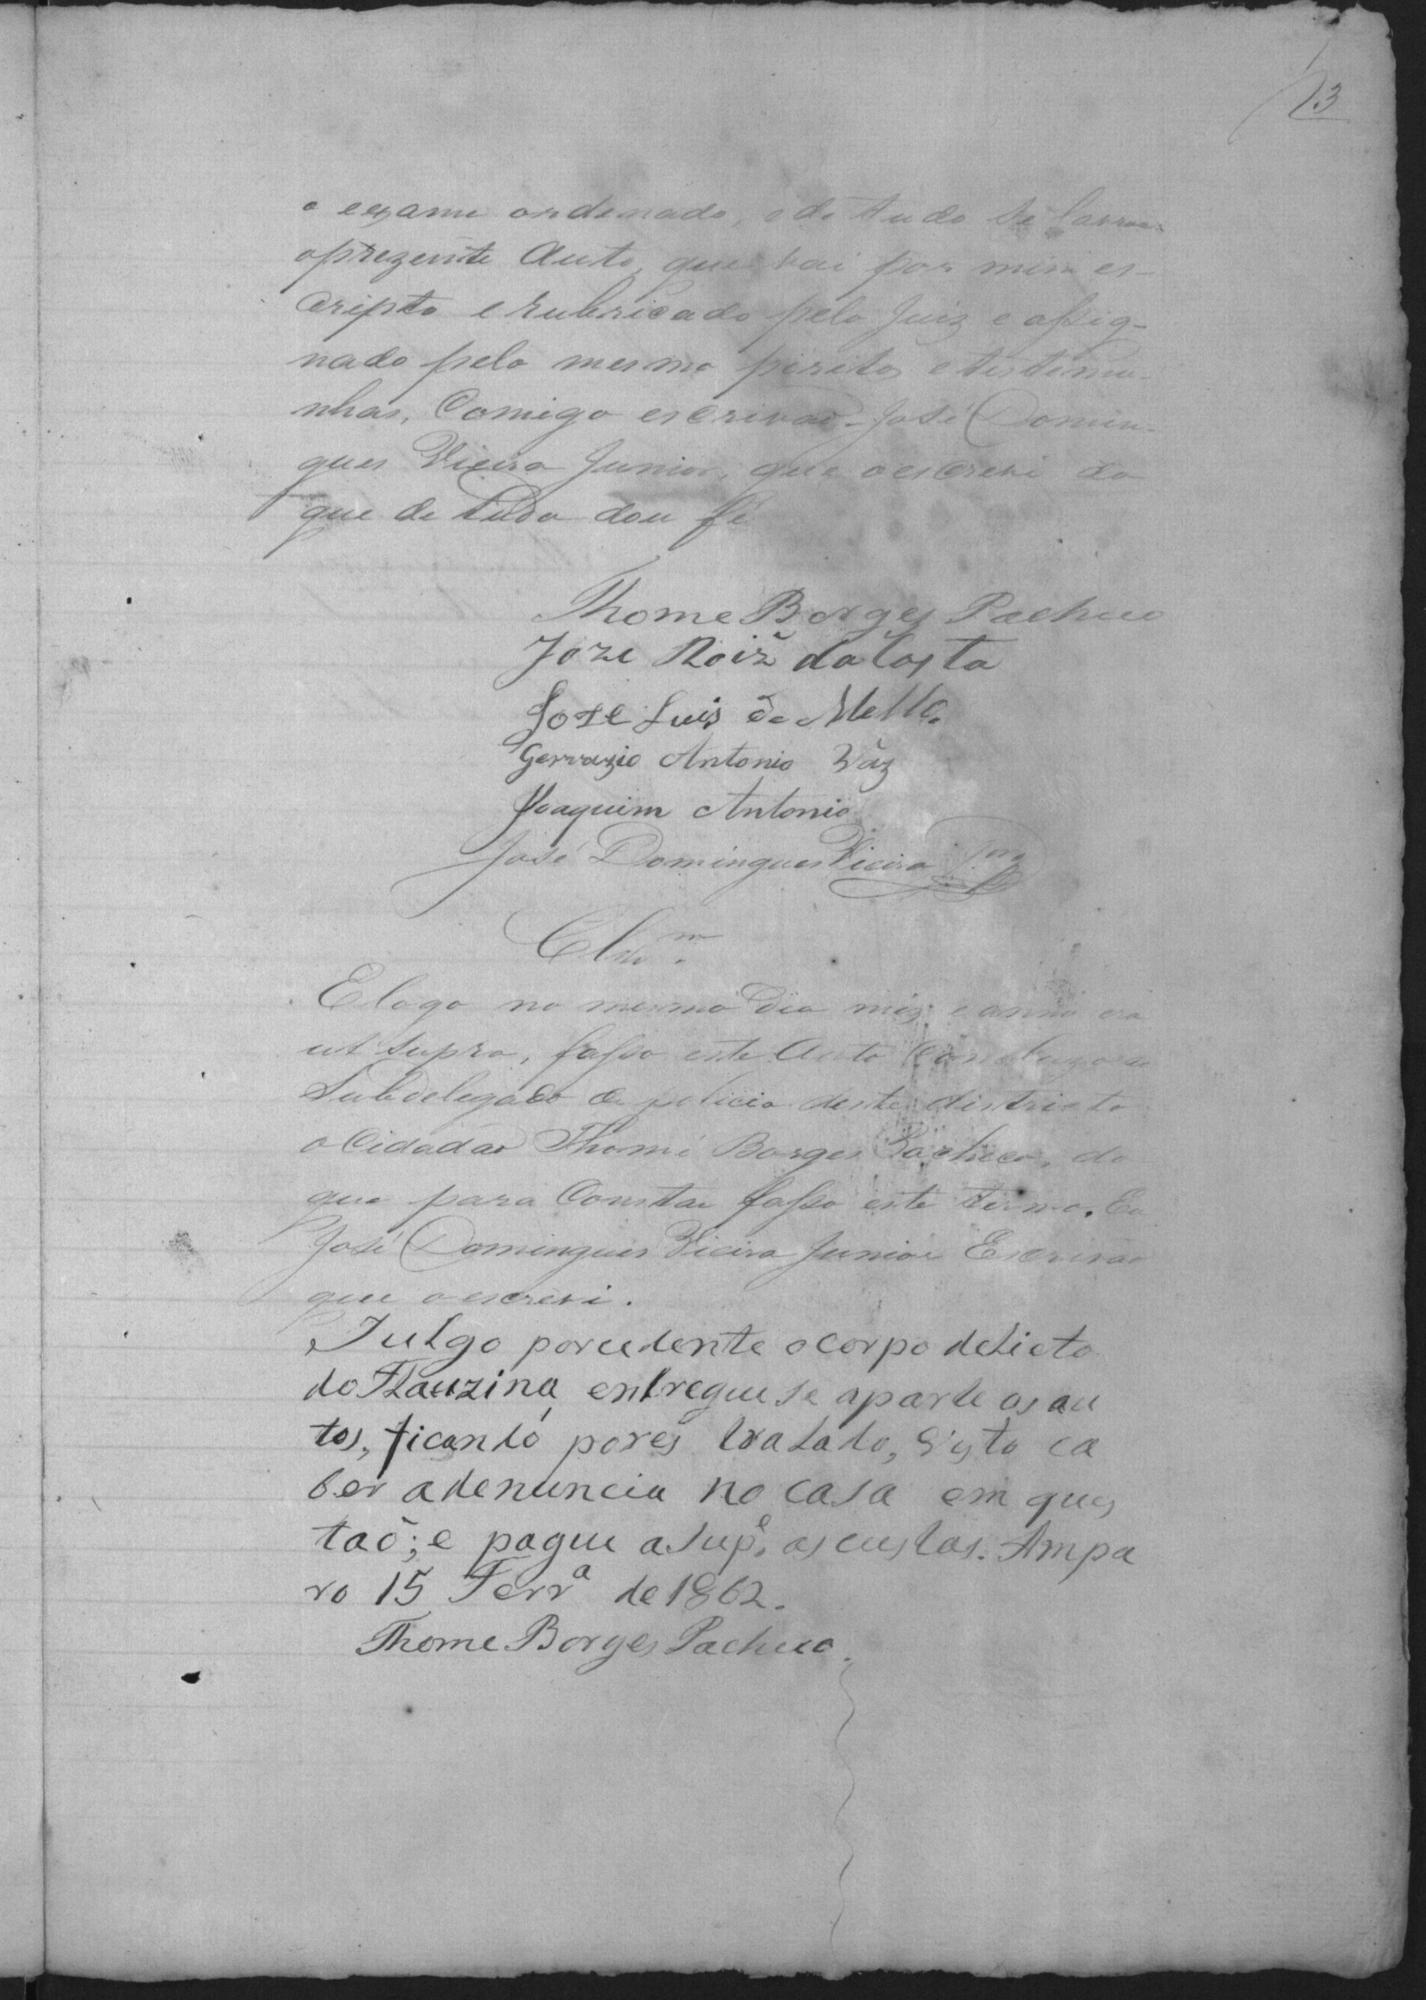 13
o exzame ordenado, e de tudo se lavrou
oprezente Auto, que vai por mim es-
cripto e rubricado pelo Juiz e assig-
nado pelo mesmo peritos e testemu-
nhas, Comigo escrivaõ José Domin-
gues Vieira Junior, que o escrevi do
que de tudo dou fé
Thome Borges Pacheco
Joze Roiz̃ da Costa
Joze Luis de Mello.
Gervazio Antonio Váz
Joaquim Antonio
José Domingues Vieira Jor
Clsm.
E logo no mesmo dia mez e anno era
ut supra, fasso este Auto Concluzo ao
Subdelegado de policia deste districto
o Cidadaõ Thomé Borges Pacheco, do
que para Constar fasso este termo. Eu
José Domingues Vieira Junior Escrivaõ
que o escrevi.
Julgo porcedente o corpo delicto
do Flauzina, entregue se aparte os au
tos, ficando porẽs tratado, visto ca
ber adenuncia no casa em ques
taõ; e pague a Supe. as custas. Ampa
ro 15 Ferra de 1862.
Thome Borges Pacheco.